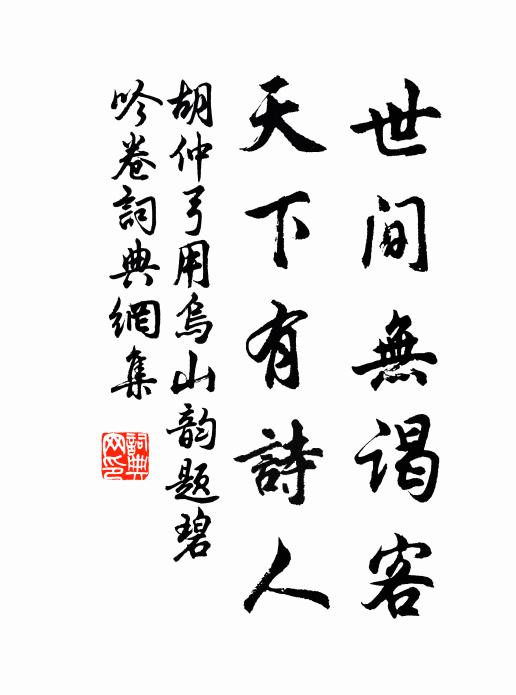 世间無谒客
天下有詩人
胡仲弓用烏山韵题碧
吟卷詞典網集
詞典
网印